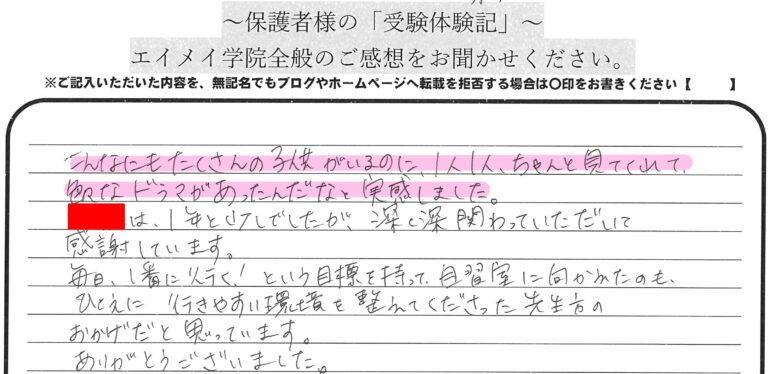 ～保護者様の「受験体験記」～
エイメイ学院全般のご感想をお聞かせください。
※ご記入いただいた内容を、無記名でもブログやホームページへ転載を拒否する場合は〇印をお書きください【　　】
こんなにもたくさんの子供がいるのに、1人1人、ちゃんと見てくれて、
色々なドラマがあったんだなと実感しました。
は、1年と少しでしたが、深く深く関わっていただいて
感謝しています。
毎日、1番に行く！という目標を持って、自習室に向かえたのも、
ひとえに 行きやすい環境を整えてくださった先生方の
おかげだと思っています。
ありがとうございました。